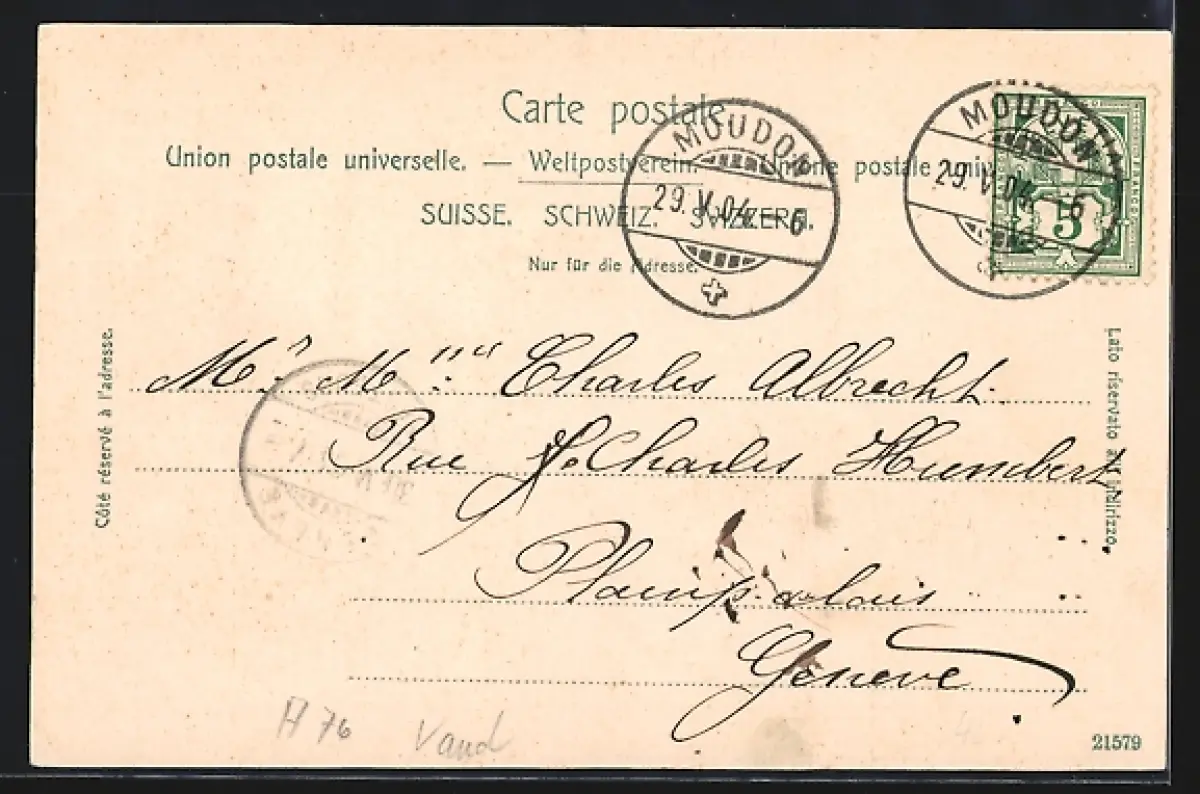 Carte postale
Union postale universelle. — Weltpostverein. — Unione postale univ
SUISSE. SCHWEIZ. SVIZZERA.
Nur für die Adresse.
MOUDON
29. V. 04. - 6
MOUDON
29. V. 04. - 6
5
Côté réservé à l'adresse.
Lato riservato all'indirizzo.
Mr. Charles Albrecht.
Rue Charles Humbert
Plainpalais
Genève
A 76 Vaud
21579